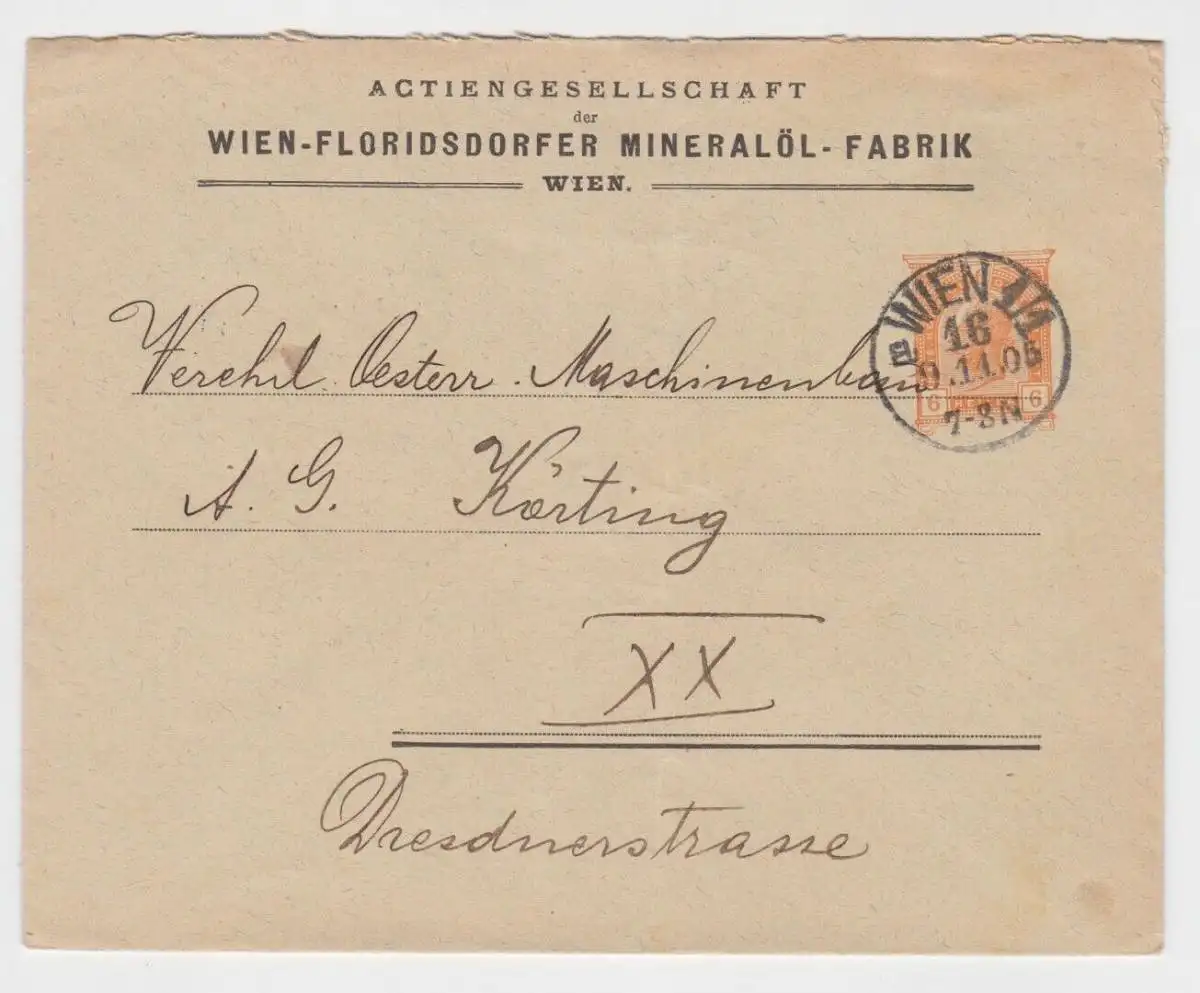 ACTIENGESELLSCHAFT
der
WIEN-FLORIDSDORFER MINERALÖL-FABRIK
WIEN.
WIEN 1/1
16
9.11.05
7-8N
6 6
Verehrl. Oesterr. Maschinenbau
A. G. Körting
XX
Dresdnerstrasse